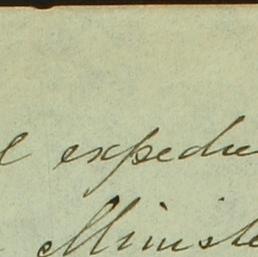 l expedie
Ministe